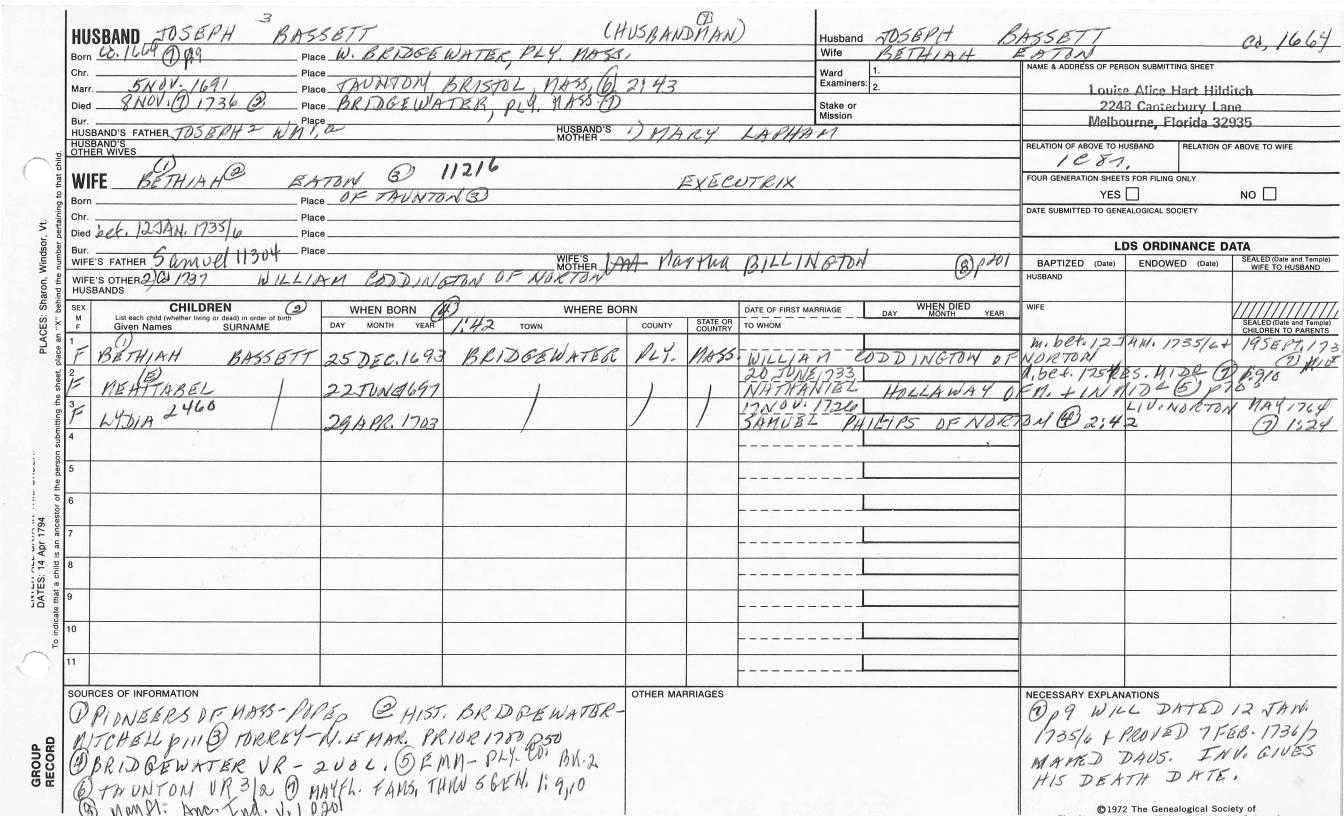 HUSBAND JOSEPH 3 BASSETT (HUSBANDMAN) (7)
Born ca. 1664 (7) p9 Place W. BRIDGEWATER, PLY. MASS.
Chr. Place
Marr. 5 NOV. 1691 Place TAUNTON BRISTOL, MASS. (6) 2:43
Died 8 NOV. (7) 1736 (2) Place BRIDGEWATER, PLY. MASS (7)
Bur. Place
HUSBAND'S FATHER JOSEPH 2 WM 1, 2 HUSBAND'S MOTHER 1) MARY LAPHAM
HUSBAND'S OTHER WIVES
WIFE (1) BETHIAH (2) EATON (3) 11216 EXECUTRIX
Born Place OF TAUNTON (3)
Chr. Place
Died bet. 12 JAN. 1735/6 Place
Bur. Place
WIFE'S FATHER Samuel 11304 WIFE'S MOTHER Martha BILLINGTON (8) p201
WIFE'S OTHER HUSBANDS 2) 1737 WILLIAM CODDINGTON OF NORTON
Husband JOSEPH BASSETT ca. 1664
Wife BETHIAH EATON
Ward Examiners: 1.
2.
Stake or Mission
NAME & ADDRESS OF PERSON SUBMITTING SHEET
Louise Alice Hart Hilditch
2243 Canterbury Lane
Melbourne, Florida 32935
RELATION OF ABOVE TO HUSBAND RELATION OF ABOVE TO WIFE
1C 8r.
FOUR GENERATION SHEETS FOR FILING ONLY
YES NO
DATE SUBMITTED TO GENEALOGICAL SOCIETY
LDS ORDINANCE DATA
BAPTIZED (Date) ENDOWED (Date) SEALED (Date and Temple) WIFE TO HUSBAND
HUSBAND
WIFE
SEALED (Date and Temple) CHILDREN TO PARENTS
SEX M F
CHILDREN (2) WHEN BORN (4) 1:42 WHERE BORN DATE OF FIRST MARRIAGE WHEN DIED
List each child (whether living or dead) in order of birth
Given Names SURNAME DAY MONTH YEAR TOWN COUNTY STATE OR COUNTRY TO WHOM DAY MONTH YEAR
1 F (1) BETHIAH BASSETT 25 DEC. 1693 BRIDGEWATER PLY. MASS. WILLIAM CODDINGTON OF NORTON m. bet. 12 JAN. 1735/6 + 19 SEPT. 173
2 F MEHITABEL (5) 22 JUNE 1697 20 JUNE 1733 NATHANIEL HOLLAWAY OF M. + IN MIDL (5) d. bet. 1754 RES. MIDL (7) p. 910
3 F LYDIA 2460 29 APR. 1703 17 NOV. 1726 SAMUEL PHILIPS OF NORTON (4) 2:42 LIV. NORTON MAY 1764 (7) 1:24
4
5
6
7
8
9
10
11
SOURCES OF INFORMATION
(1) PIONEERS OF MASS - POPE, (2) HIST. BRIDGEWATER -
MITCHELL p111 (3) TORREY - N.E MAR. PRIOR 1700 p50
(4) BRIDGEWATER VR - 2 VOL. (5) EMM - PLY. CO. BK. 2
(6) TAUNTON VR 3/2 (7) MAYFL. FAMS, THRU 5 GEN. 1:9,10
(8) Mayfl. Anc. Ind. V.1 p201
OTHER MARRIAGES
NECESSARY EXPLANATIONS
(7) p9 WILL DATED 12 JAN.
1735/6 + PROVED 7 FEB. 1736/7
NAMED DAUS. INV. GIVES
HIS DEATH DATE.
©1972 The Genealogical Society of
PLACES: Sharon, Windsor, Vt.
DATES: 14 Apr 1794
To indicate that a child is an ancestor of the person submitting the sheet, place an "X" behind the number pertaining to that child.
GROUP RECORD